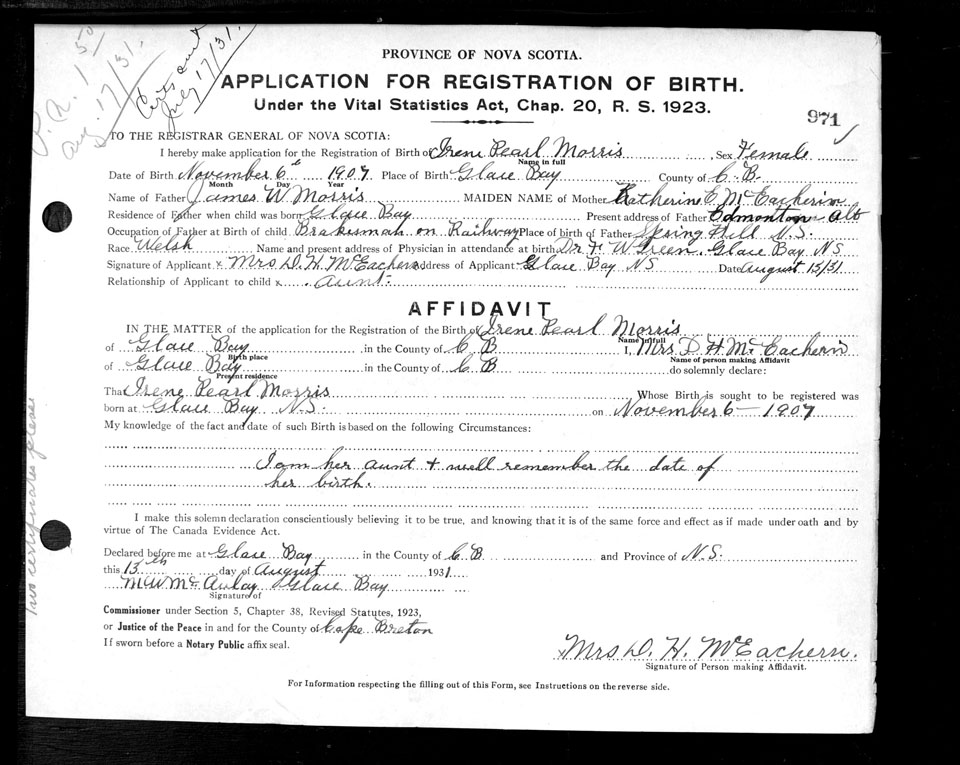 P. R. 1 50
Aug. 17/31.
Certs sent
July 17/31.
PROVINCE OF NOVA SCOTIA.
APPLICATION FOR REGISTRATION OF BIRTH.
Under the Vital Statistics Act, Chap. 20, R. S. 1923.
971
TO THE REGISTRAR GENERAL OF NOVA SCOTIA:
I hereby make application for the Registration of Birth of Irene Pearl Morris, Sex Female
Name in full
Date of Birth November 6th 1907 Place of Birth Glace Bay County of C. B.
Month Day Year
Name of Father James W Morris MAIDEN NAME of Mother Katherine E. McEachern
Residence of Father when child was born Glace Bay Present address of Father Edmonton Alb
Occupation of Father at Birth of child Brakesman on Railway Place of Birth of Father Spring Hill N.S.
Race Welsh Name and present address of Physician in attendance at birth Dr H. W Green. Glace Bay NS
Signature of Applicant x Mrs D. H McEachern Address of Applicant Glace Bay NS Date August 15/31
Relationship of Applicant to child x Aunt.
AFFIDAVIT
IN THE MATTER of the application for the Registration of the Birth of Irene Pearl Morris
Name in full
of Glace Bay in the County of C B I, Mrs. D H McEachern
Birth place Name of person making Affidavit
of Glace Bay in the County of C B do solemnly declare:
Present residence
That Irene Pearl Morris Whose Birth is sought to be registered was
born at Glace Bay N.S. on November 6 - 1907
My knowledge of the fact and date of such Birth is based on the following Circumstances:
I am her aunt + well remember the date of
her birth.
I make this solemn declaration conscientiously believing it to be true, and knowing that it is of the same force and effect as if made under oath and by
virtue of The Canada Evidence Act.
Declared before me at Glace Bay in the County of C B and Province of N.S.
this 15th day of August 1931
M W McAulay Glace Bay
Signature of
Commissioner under Section 5, Chapter 38, Revised Statutes, 1923,
or Justice of the Peace in and for the County of Cape Breton
If sworn before a Notary Public affix seal.
x Mrs D. H. McEachern.
Signature of Person making Affidavit.
For Information respecting the filling out of this Form, see Instructions on the reverse side.
Two certificates please